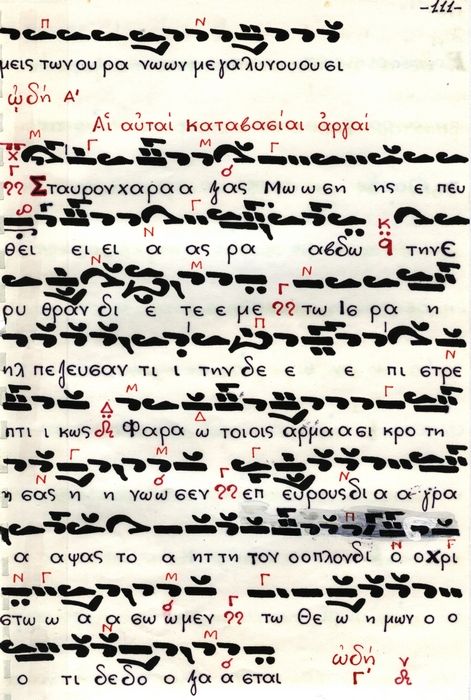 -111-
μεις των ου ρα νωων με γα λυνουου σι
ᾠδή Α'
Αἱ αὐταί καταβασίαι ἀργαί
Σταυρον χαρα α ξας Μω ω ση ης ε πευ
θει ει ει α ας ρα αβδω την Ε
ρυ θραν δι ε τε ε με τω Ισ ρα η
ηλ πε ζευσαν τι ι την δε ε ε πι στρε
πτι ι κως Φαρα ω τοιοις αρμα α σι κρο τη
η σας η η νωω σεν επ ευρους δι α α γρα
α αψας το α ητ τη τον οοπλον δι ο ο Χρι
στω ω α α σω ω μεν τω Θε ω η μων ο ο
ο τι δεδο ο ξα α σται ᾠδή Γ'